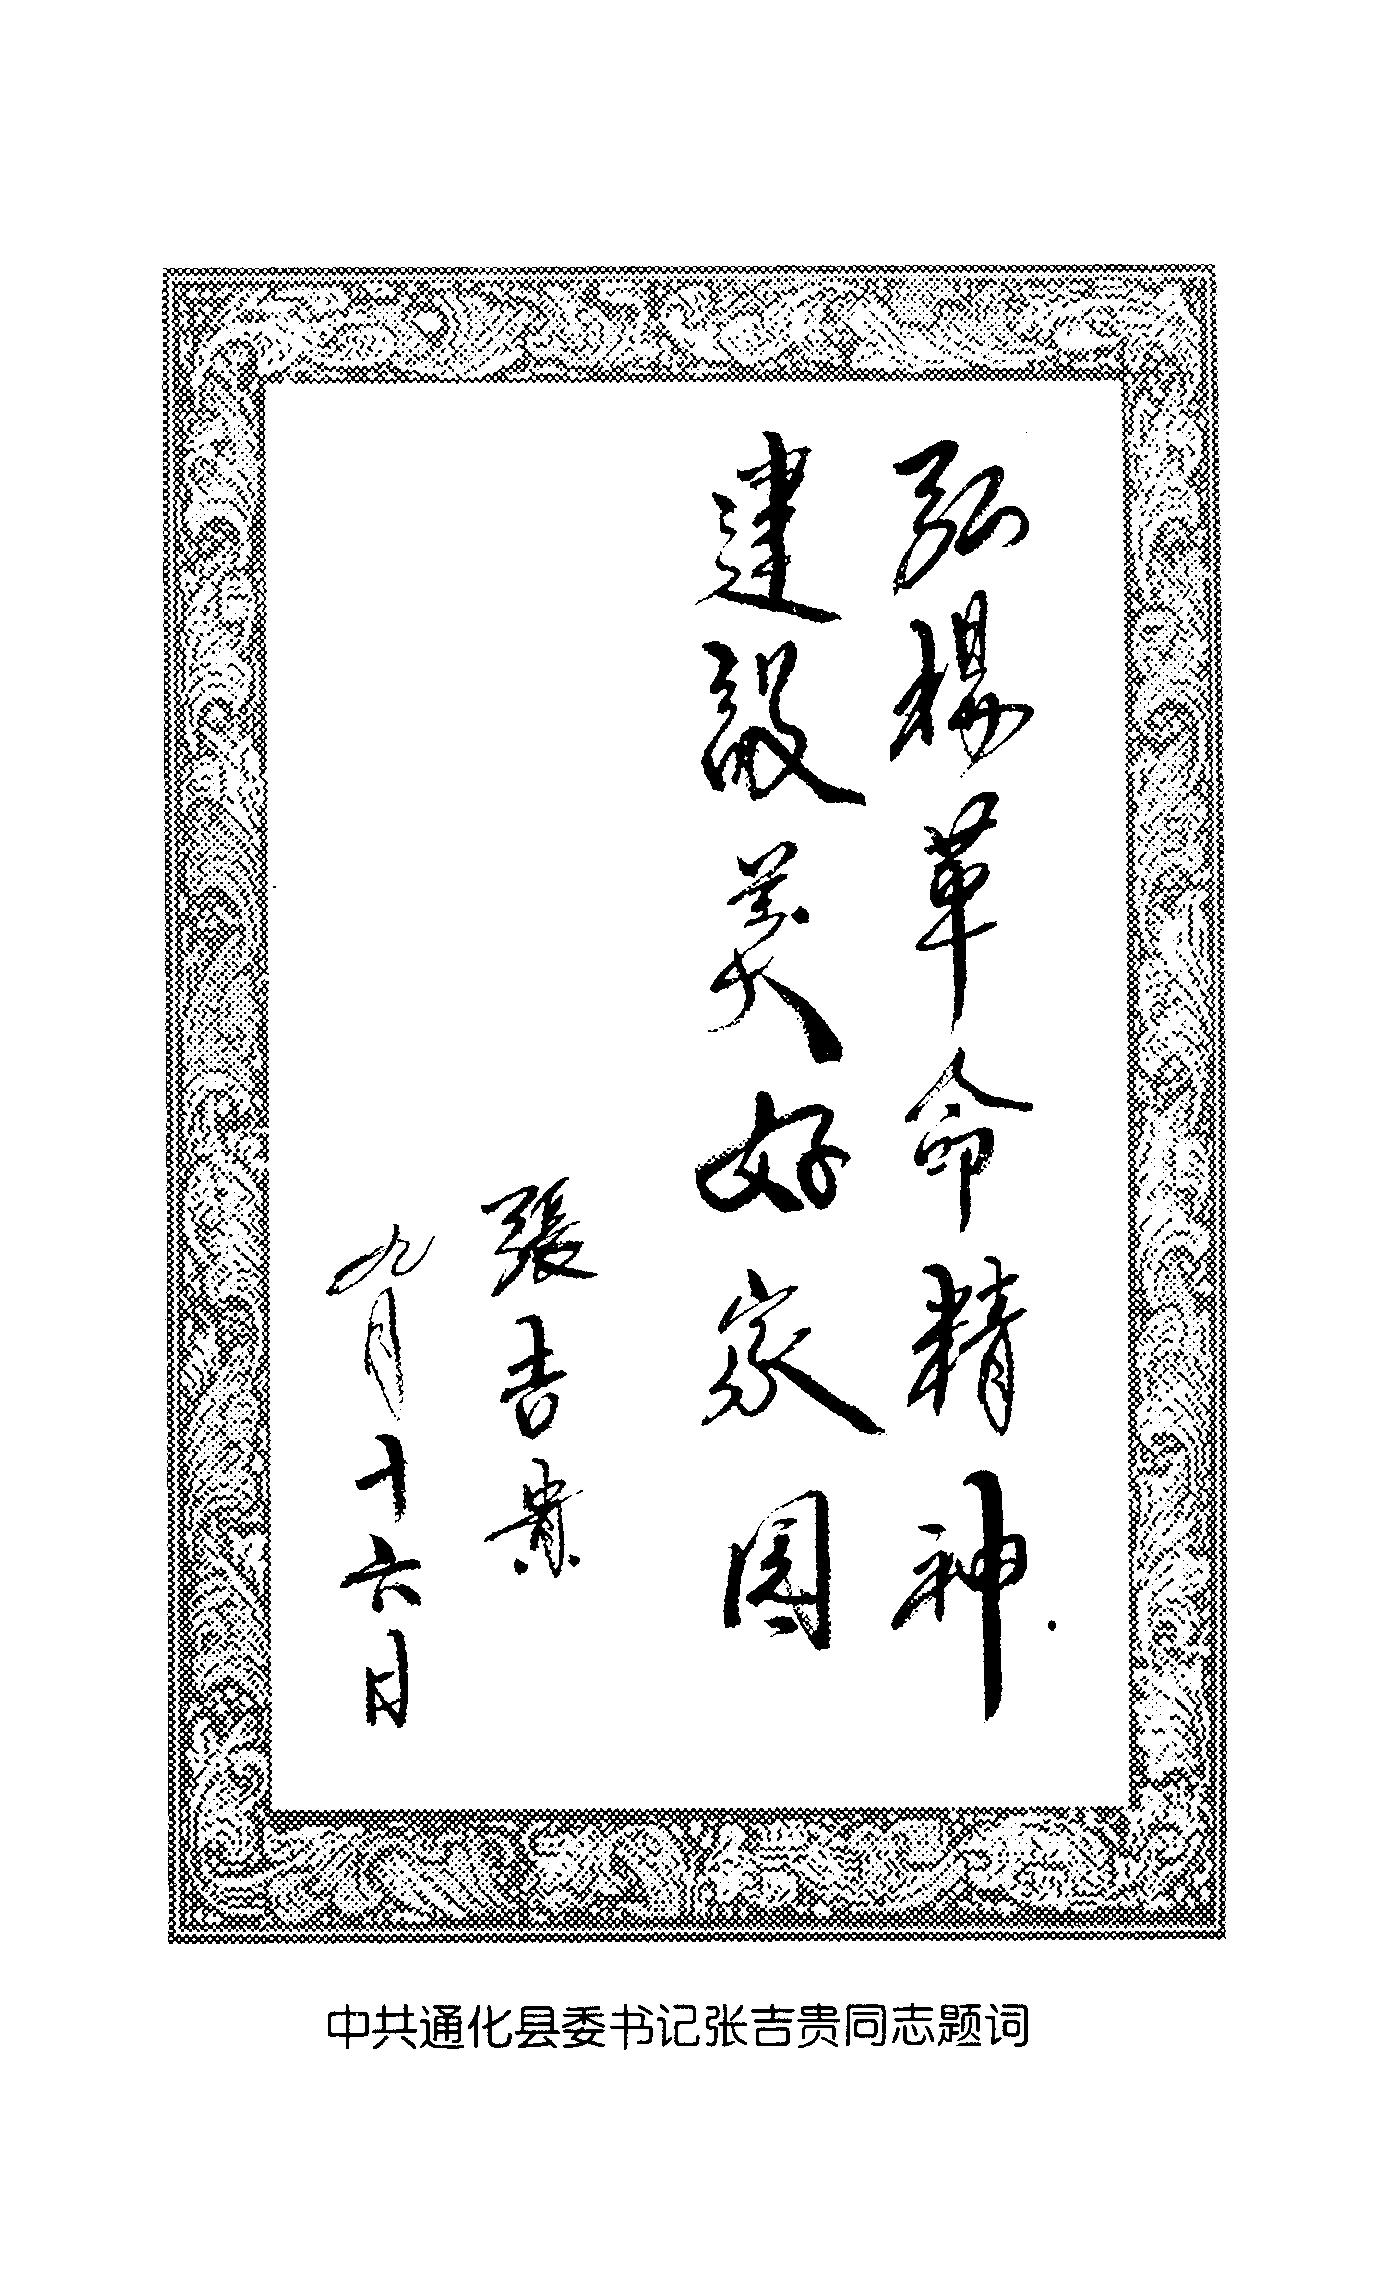 弘揚革命精神
建設美好家園
張吉貴
九月十六日
中共通化县委书记张吉贵同志题词